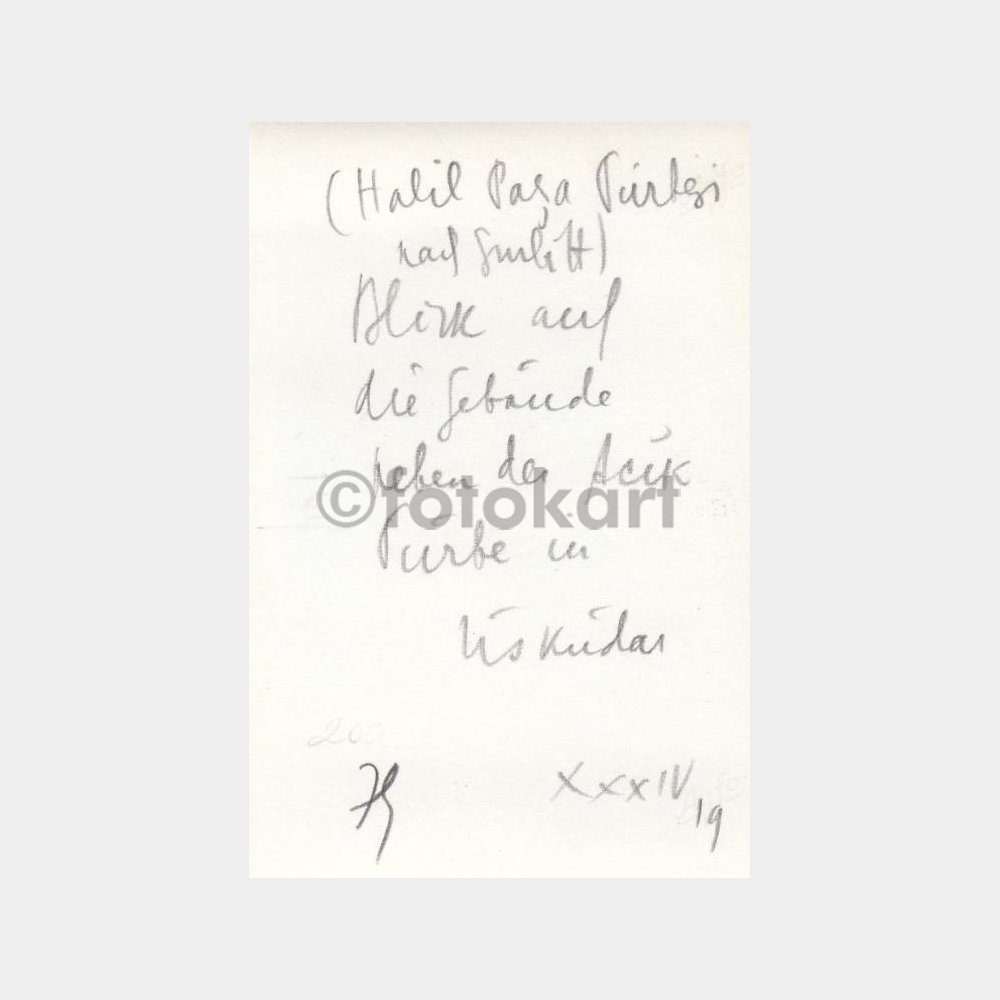 (Halil Paşa Türbesi
nach Gurlitt)
Blick auf
die Gebäude
neben der Açık
Türbe in
Üsküdar
©fotokart
200
XXXIV
19